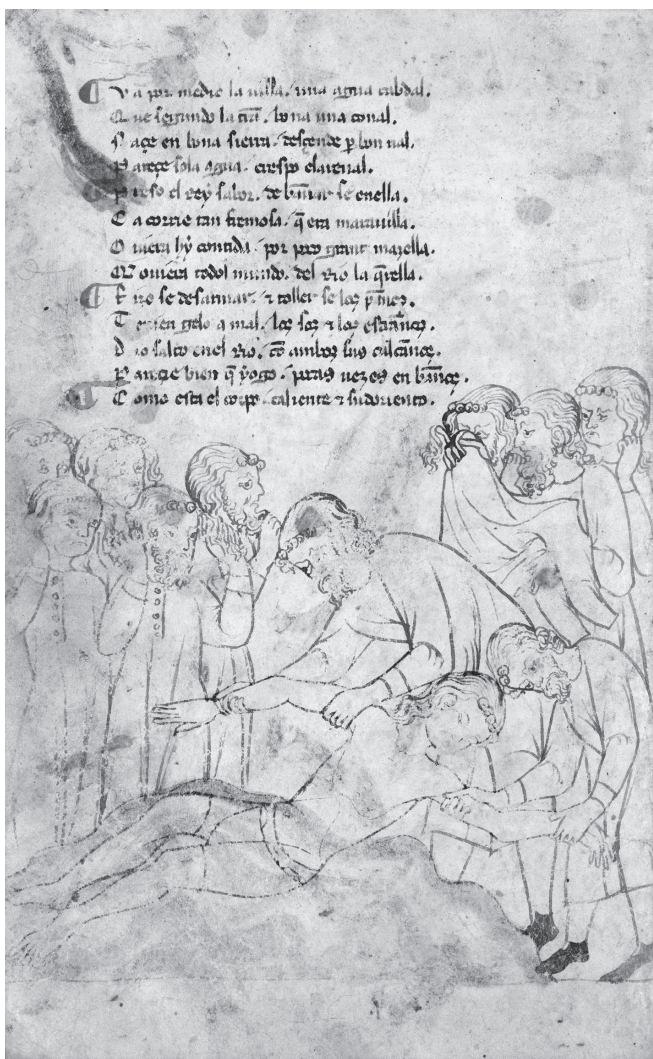 Va por medio la uilla. una agua cabdal.
Que segundo la tr̄a. bona una conal.
Naçe en bona sierra. desçende p̄ bon ual.
Pareçe sola agua. crespo elarenal.
Priso el rey sabor. de bānar se enella.
Ca corrie tan fremosa. q̄ era marauilla.
Ouiera hy contida. por poco grant mazella.
Mouiera todol mundo. del Rio la q̄rella.
Fizo se desarmar. ⁊ toller se los pānos.
Tenien gelo a mal. los sos ⁊ los estrānos.
Dio salto enel Rio. cō ambos sus calcānos.
Pareçie bien q̄ yogo. poras uezes en bānos.
Como esta el corpo. caliente ⁊ sudoriento.